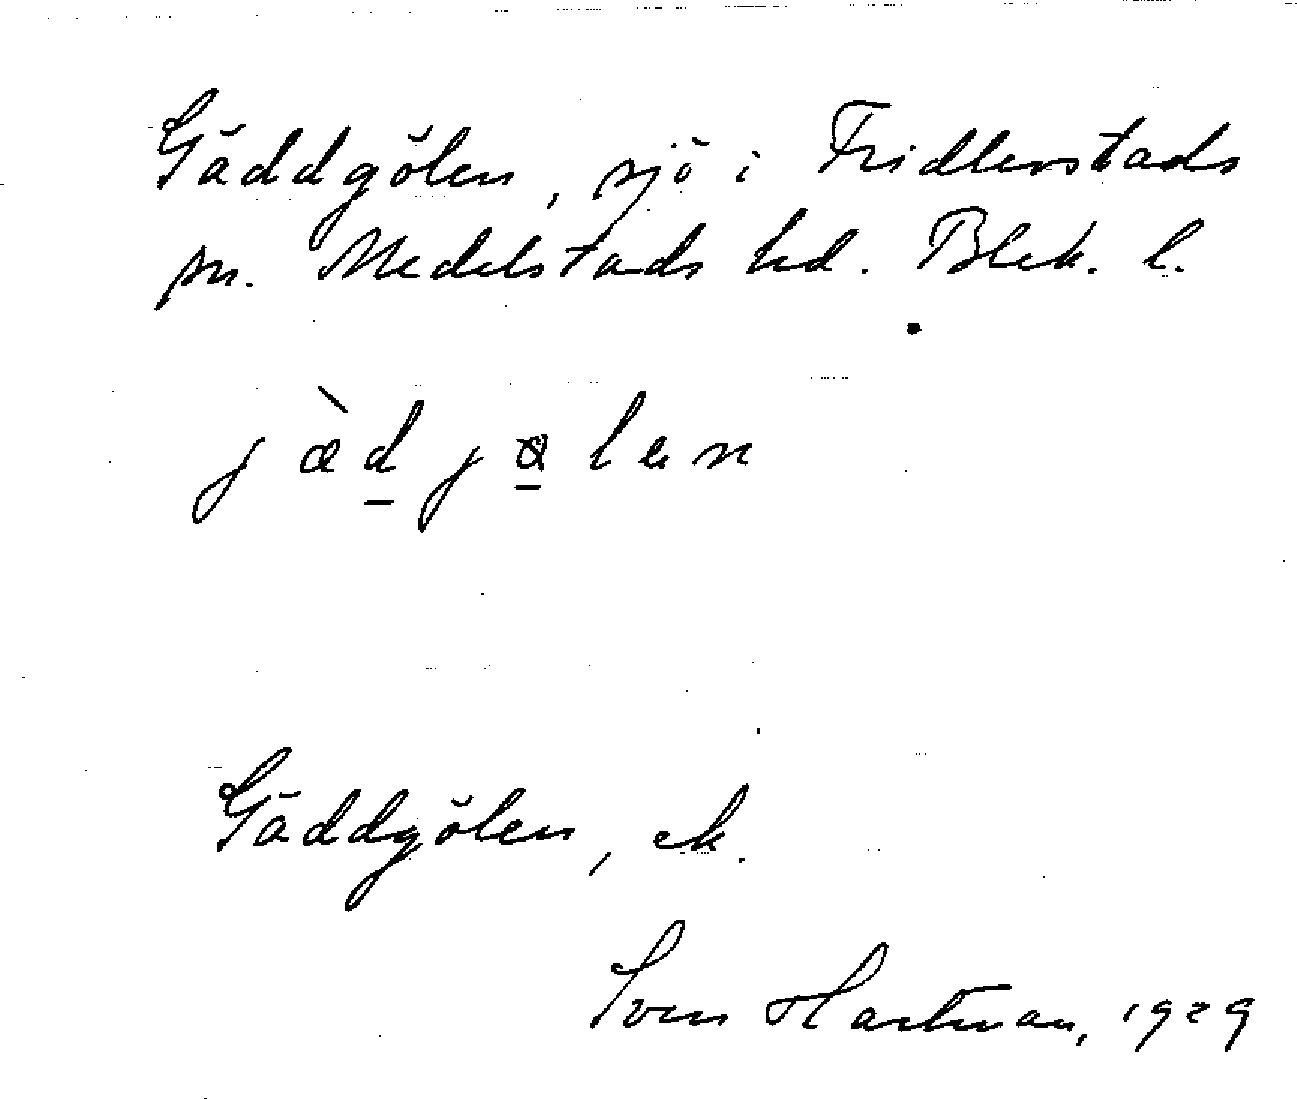 Gäddgölen, sjö i Fridlevstads
sn. Medelstads hd. Blek. l.
jæ̀d̲jɵ̲len
Gäddgölen, ek.
Sven Hartman, 1929